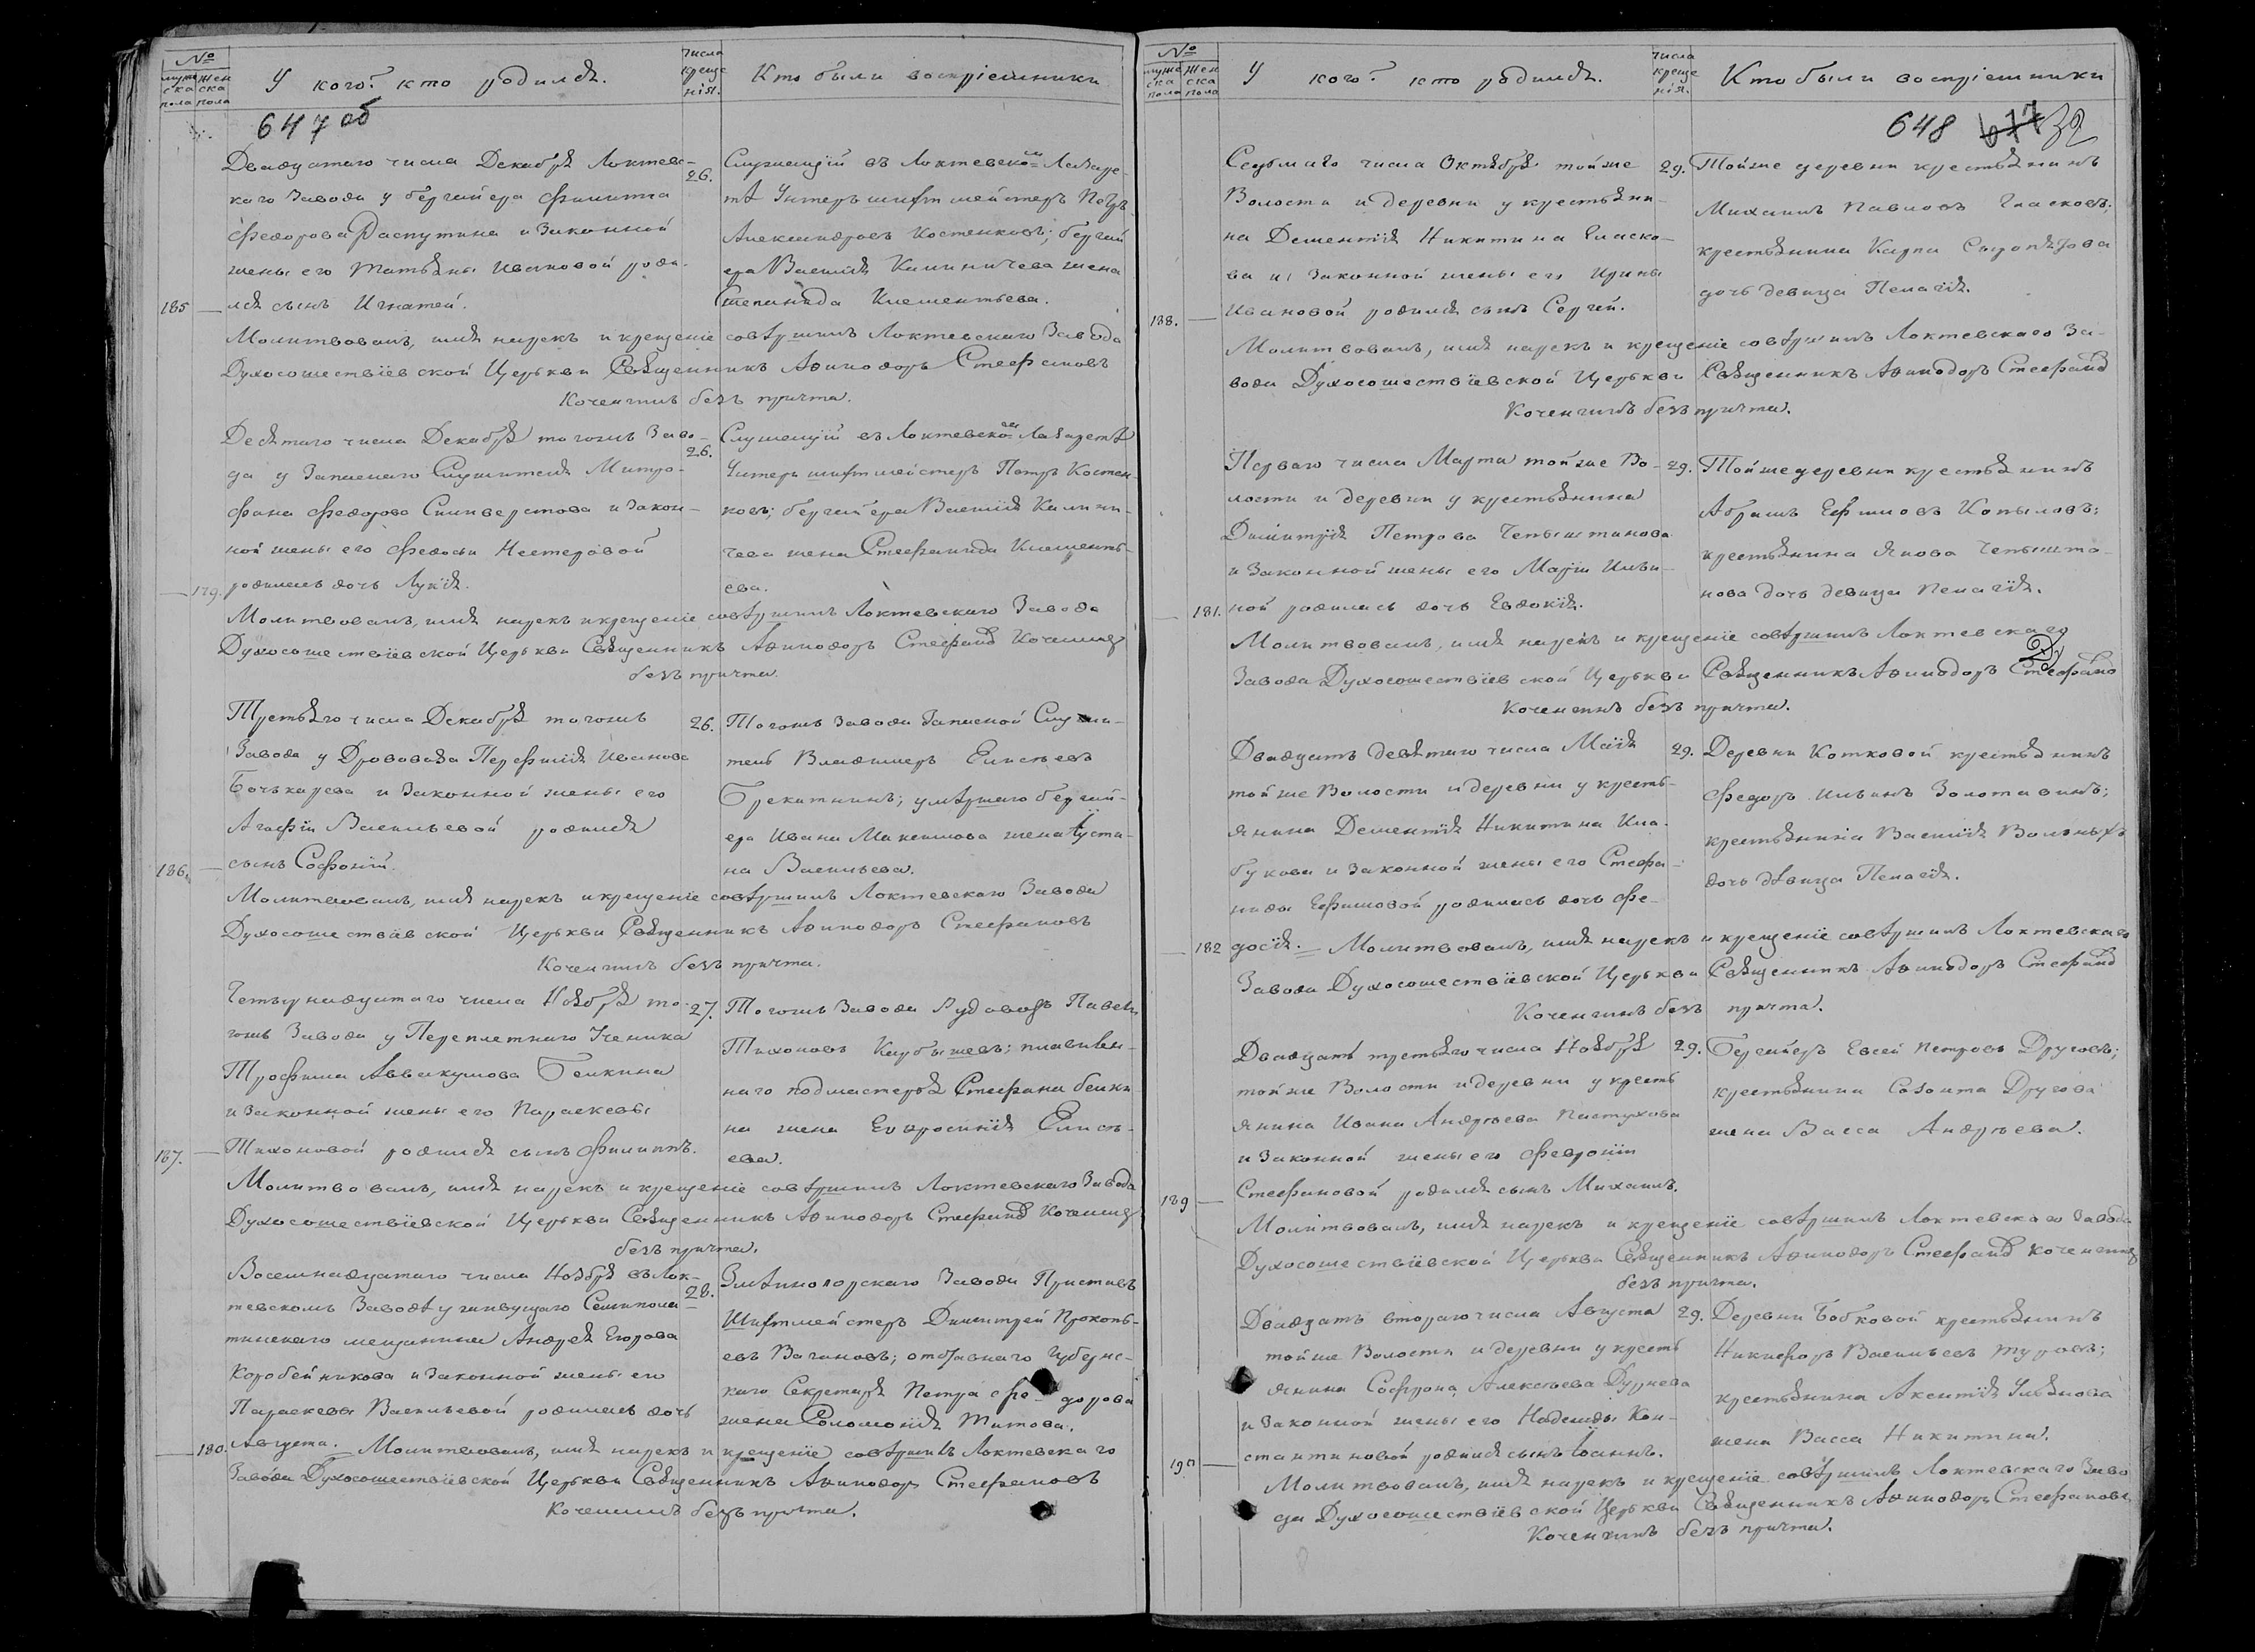 №
муже
ска
пола
жен
ска
пола
У кого? кто родился.
числа
креще
нія.
Кто были воспріемники
647 об
Двадцатаго числа Декабря Локтевс-
каго Завода у бергайера Филипа
Федорова Распутина и Законной
жены его Татьяны Ивановой роди-
185 — лся сынъ Игнатей.
26.
Служащій въ Локтевскомъ Лазаре-
тѣ Унтеръ шихтмейстеръ Петръ
Александровъ Костенковъ; бергай
ера Василія Калиничева жена
Степанида Клементьева.
Молитвовалъ, имя нарекъ и крещеніе совѣршилъ Локтевскаго Завода
Духосошествіевской Церькви Священникъ Аѳинодоръ Стефановъ
Коченгинъ безъ причта.
Десятаго числа Декабря тогожъ Заво-
да у Запаснаго Служителя Митро-
фана Федорова Силиверстова и Закон-
ной жены его Федосьи Нестеровой
— 179. родилась дочь Лукія.
26.
Служащій въ Локтевскомъ Лазаретѣ
Унтеръ шихтмейстеръ Петръ Костен-
ковъ; бергайера Василія Калини-
чева жена Стефанида Клементь-
ева.
Молитвовалъ, имя нарекъ и крещеніе совѣршилъ Локтевскаго Завода
Духосошествіевской Церькви Священникъ Аѳинодоръ Стефановъ Коченгинъ
безъ причта.
Третьяго числа Декабря тогожъ
Завода у Дрововоза Перфилія Иванова
Бочькарева и Законной жены его
Агафіи Васильевой родился
186. — сынъ Софоній.
26.
Тогожъ Завода Запасной Служи-
тель Владимеръ Елисѣевъ
Брекатнинъ; умѣршаго бергай-
ера Ивана Максимова жена Іусти-
на Васильева.
Молитвовалъ, имя нарекъ и крещеніе совѣршилъ Локтевскаго Завода
Духосошествіевской Церькви Священникъ Аѳинодоръ Стефановъ
Коченгинъ безъ причта.
Четырнадцатаго числа Ноября то-
гожъ Завода у Переплетнаго Ученика
Трофима Аввакумова Белкина
и Законной жены его Параскевы
187. — Тихоновой родился сынъ Филиппъ.
27.
Тогожъ Завода Рудовозъ Павелъ
Тихоновъ Карбышевъ; плавилен-
наго подмастерья Стефана Белки-
на жена Евфросинія Елисѣ-
ева.
Молитвовалъ, имя нарекъ и крещеніе совѣршилъ Локтевскаго Завода
Духосошествіевской Церькви Священникъ Аѳинодоръ Стефановъ Коченгинъ
безъ причта.
Восемнадцатаго числа Ноября въ Лок-
тевскомъ Заводѣ у живущаго Семипола-
тинскаго мещанина Андрея Егорова
Коробейникова и Законной жены его
Параскевы Васильевой родилась дочь
28.
Змѣиногорскаго Завода Приставъ
Шихтмейстеръ Димитрей Прокопь-
евъ Вагановъ; отставнаго Губернс-
каго Секретаря Петра Фе-дорова
жена Соломонія Титова.
— 180. Августа. — Молитвовалъ, имя нарекъ и крещеніе совѣршилъ Локтевскаго
Завода Духосошествіевской Церькви Священникъ Аѳинодоръ Стефановъ
Коченгинъ безъ причта.
№
муже
ска
пола
Жен
ска
пола
У кого? кто родился.
числа
креще
нія.
Кто были воспріемники
648 647 32
Седьмаго числа Октября тойже
Волости и деревни у крестьяни-
на Дементія Никитина Гласко-
ва и Законной жены его Ирины
188. — Ивановой родился сынъ Сергей.
29.
Тойже деревни крестьянинъ
Михаилъ Павловъ Гласковъ;
крестьянина Карпа Сыропятова
дочь девица Пелагія.
Молитвовалъ, имя нарекъ и крещеніе совѣршилъ Локтевскаго За-
вода Духосошествіевской Церькви Священникъ Аѳинодоръ Стефановъ
Коченгинъ безъ причта.
Перваго числа Марта тойже Во-
лости и деревни у крестьянина
Димитрія Петрова Четыштанова
и Законной жены его Маріи Ильи-
— 181. ной родилась дочь Евдокія.
29.
Тойже деревни крестьянинъ
Абрамъ Ефимовъ Копыловъ;
крестьянина Якова Четышта-
нова дочь девица Пелагія.
Молитвовалъ, имя нарекъ и крещеніе совѣршилъ Локтевскаго
Завода Духосошествіевской Церькви Священникъ Аѳинодоръ Стефановъ
Коченгинъ безъ причта.
Двадцать девятаго числа Маія
тойже Волости и деревни у кресть-
янина Дементія Никитина Кла-
букова и Законной жены его Стефа-
ниды Ефимовой родилась дочь Фе-
29.
Деревни Котковой крестьянинъ
Федоръ Ильинъ Золотавинъ;
крестьянина Василія Вольныхъ
дочь дѣвица Пелагія.
— 182 досія. — Молитвовалъ, имя нарекъ и крещеніе совѣршилъ Локтевскаго
Завода Духосошествіевской Церькви Священникъ Аѳинодоръ Стефановъ
Коченгинъ безъ причта.
Двадцать третьяго числа Ноября
тойже Волости и деревни у кресть
янина Ивана Андрѣева Пастухова
и Законной жены его Февроніи
189 — Стефановой родился сынъ Михаилъ.
29.
Бергаеръ Евсей Петровъ Друговъ;
крестьянина Созонта Другова
жена Васса Андрѣева.
Молитвовалъ, имя нарекъ и крещеніе совѣршилъ Локтевскаго Завода
Духосошествіевской Церькви Священникъ Аѳинодоръ Стефановъ Коченгинъ
безъ причта.
Двадцать втораго числа Августа
тойже Волости и деревни у кресть
янина Софрона Алексѣева Дурнева
и Законной жены его Надежды Кон-
190 — стантиновой родился сынъ Іоаннъ.
29.
Деревни Бобковой крестьянинъ
Никифоръ Васильевъ Туровъ;
крестьянина Аксентія Ульянова
жена Васса Никитина.
Молитвовалъ, имя нарекъ и крещеніе совѣршилъ Локтевскаго Заво
да Духосошествіевской Церькви Священникъ Аѳинодоръ Стефановъ
Коченгинъ безъ причта.